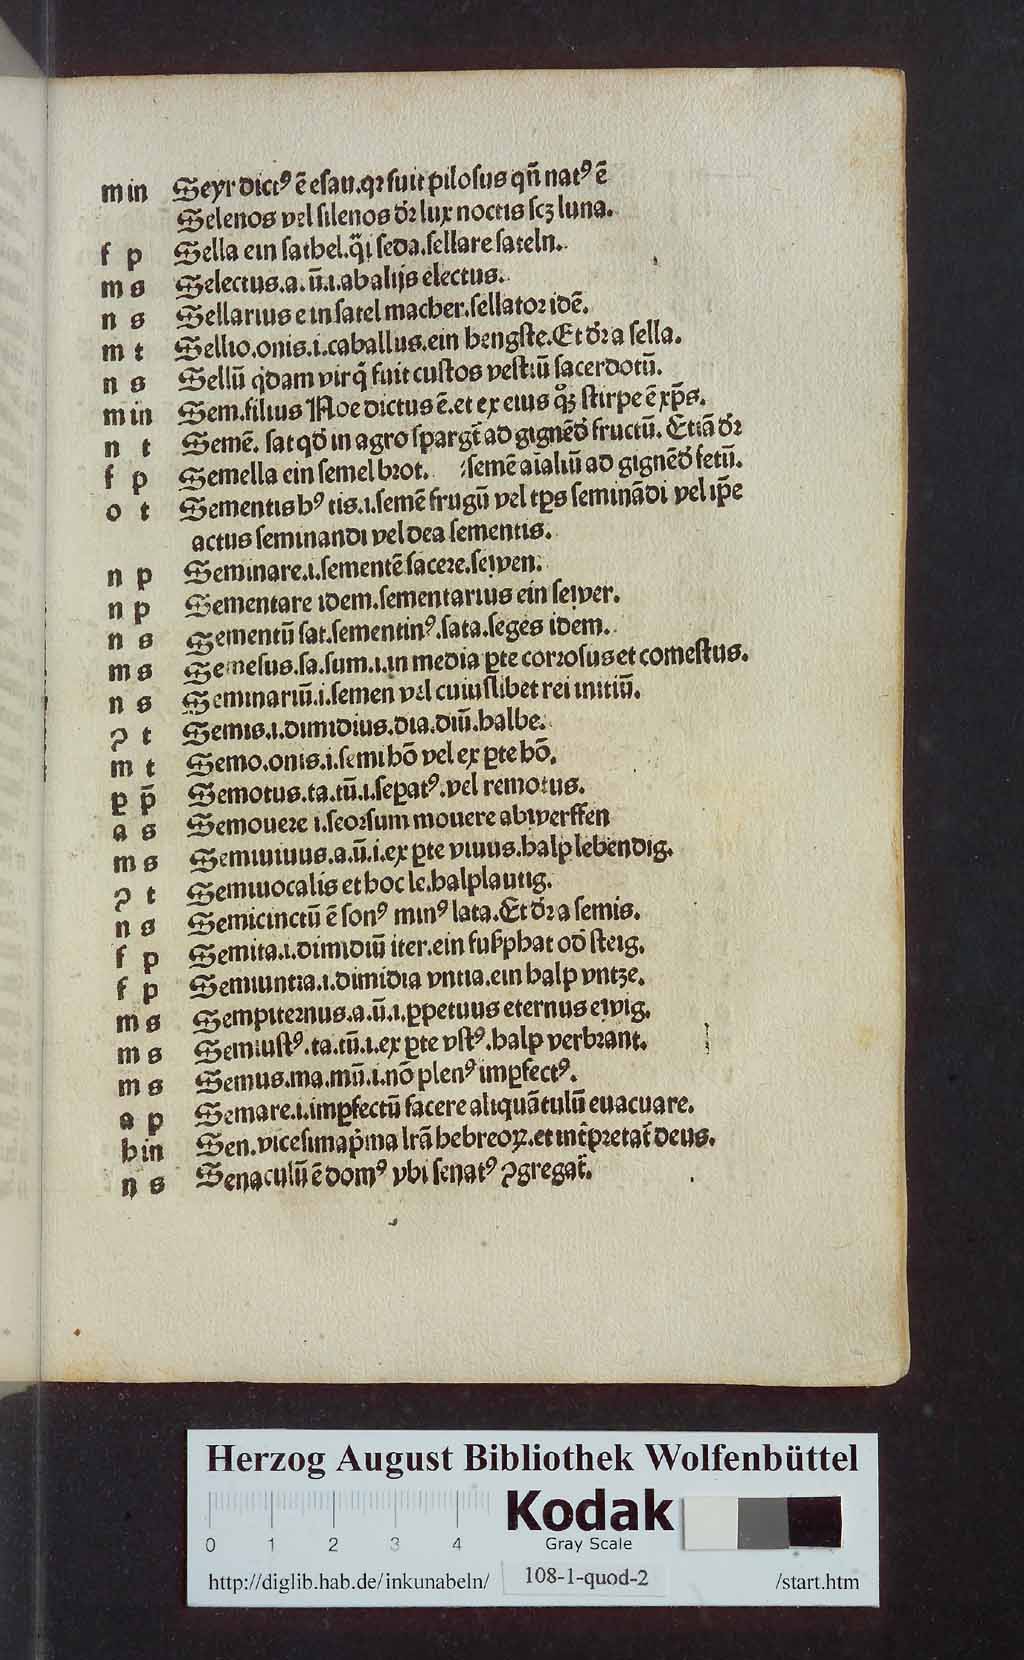 m in Seyr dictꝰ ē esau.qꝛ fuit pilosus qn̄ natꝰ ē
Selenos vel silenos dꝛ lux noctis scꝫ luna.
f p Sella ein sathel.q̄si seda.sellare sateln.
m s Selectus.a.ū.i.ab alijs electus.
n s Sellarius ein satel macher.sellator idē.
m t Sellio.onis.i.caballus.ein hengste.Et dꝛ a sella.
n s Sellū qdam vir q̇ fuit custos vestiū sacerdotū.
m in Sem.filius Noe dictus ē.et ex eius qͦꝫ stirpe ē xp̄s.
n t Semē. sat qd in agro spargt̄ ad gignēd fructū. Etiā dꝛ
f p Semella ein semel brot. semē aīaliū ad gignēd fetū.
o t Sementis hꝰ tis.i.semē frugū vel tp̄s seminādi vel ip̄e
actus seminandi vel dea sementis.
n p Seminare.i.sementē facere.sewen.
n p Sementare idem.sementarius ein sewer.
n s Sementū sat.sementinꝰ.sata.seges idem.
m s Semesus.sa.sum.i.in media ꝑte corrosus et comestus.
n s Seminariū.i.semen vel cuiuslibet rei initiū.
ꝯ t Semis.i.dimidius.dia.diū.halbe.
m t Semo.onis.i.semihō vel ex ꝑte hō.
ꝑ p̄ Semotus.ta.tū.i.seꝑatꝰ.vel remotus.
a s Semouere i.seorsum mouere abwerffen
m s Semiuiuus.a.ū.i.ex ꝑte viuus.halp lebendig.
ꝯ t Semiuocalis et hoc le.halplautig.
n s Semicinctū ē sonꝰ minꝰ lata.Et dꝛ a semis.
f p Semita.i.dimidiū iter.ein fußphat od steig.
f p Semiuntia.i.dimidia vntia.ein halp vntze.
m s Sempiternus.a.ū.i.ꝑpetuus eternus ewig.
m s Semiustꝰ.ta.tū.i.ex ꝑte vstꝰ.halp verbrant.
m s Semus.ma.mū.i.nō plenꝰ imꝑfectꝰ.
a p Semare.i.imꝑfectū facere aliquātulū euacuare.
h in Sen.vicesimapͥma lrā hebreoꝝ.et int̄pretat̄ deus.
n s Senaculū ē domꝰ vbi senatꝰ ꝯgregat̄.
Herzog August Bibliothek Wolfenbüttel
0 1 2 3 4
Kodak
Gray Scale
http://diglib.hab.de/inkunabeln/ 108-1-quod-2 /start.htm